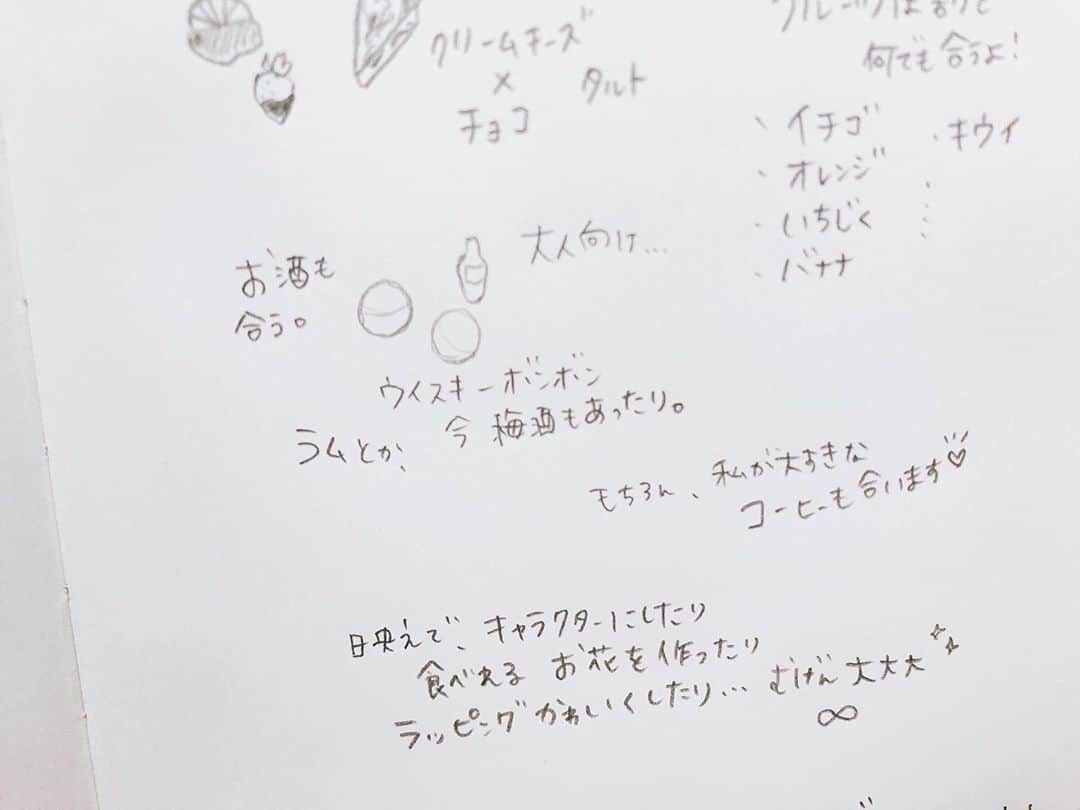 クリームチーズ
×
チョコ
タルト
フルーツは割と
何でも合うよ!
・イチゴ
・オレンジ
・いちじく
・バナナ
・キウイ
お酒も
合う。
大人向け…
ウイスキーボンボン
ラムとか、今 梅酒もあったり。
もちろん、私が大すきな
コーヒーも合います♡
映えで、キャラクターにしたり
食べれる お花を作ったり
ラッピングかわいくしたり… むげん大大大
∞